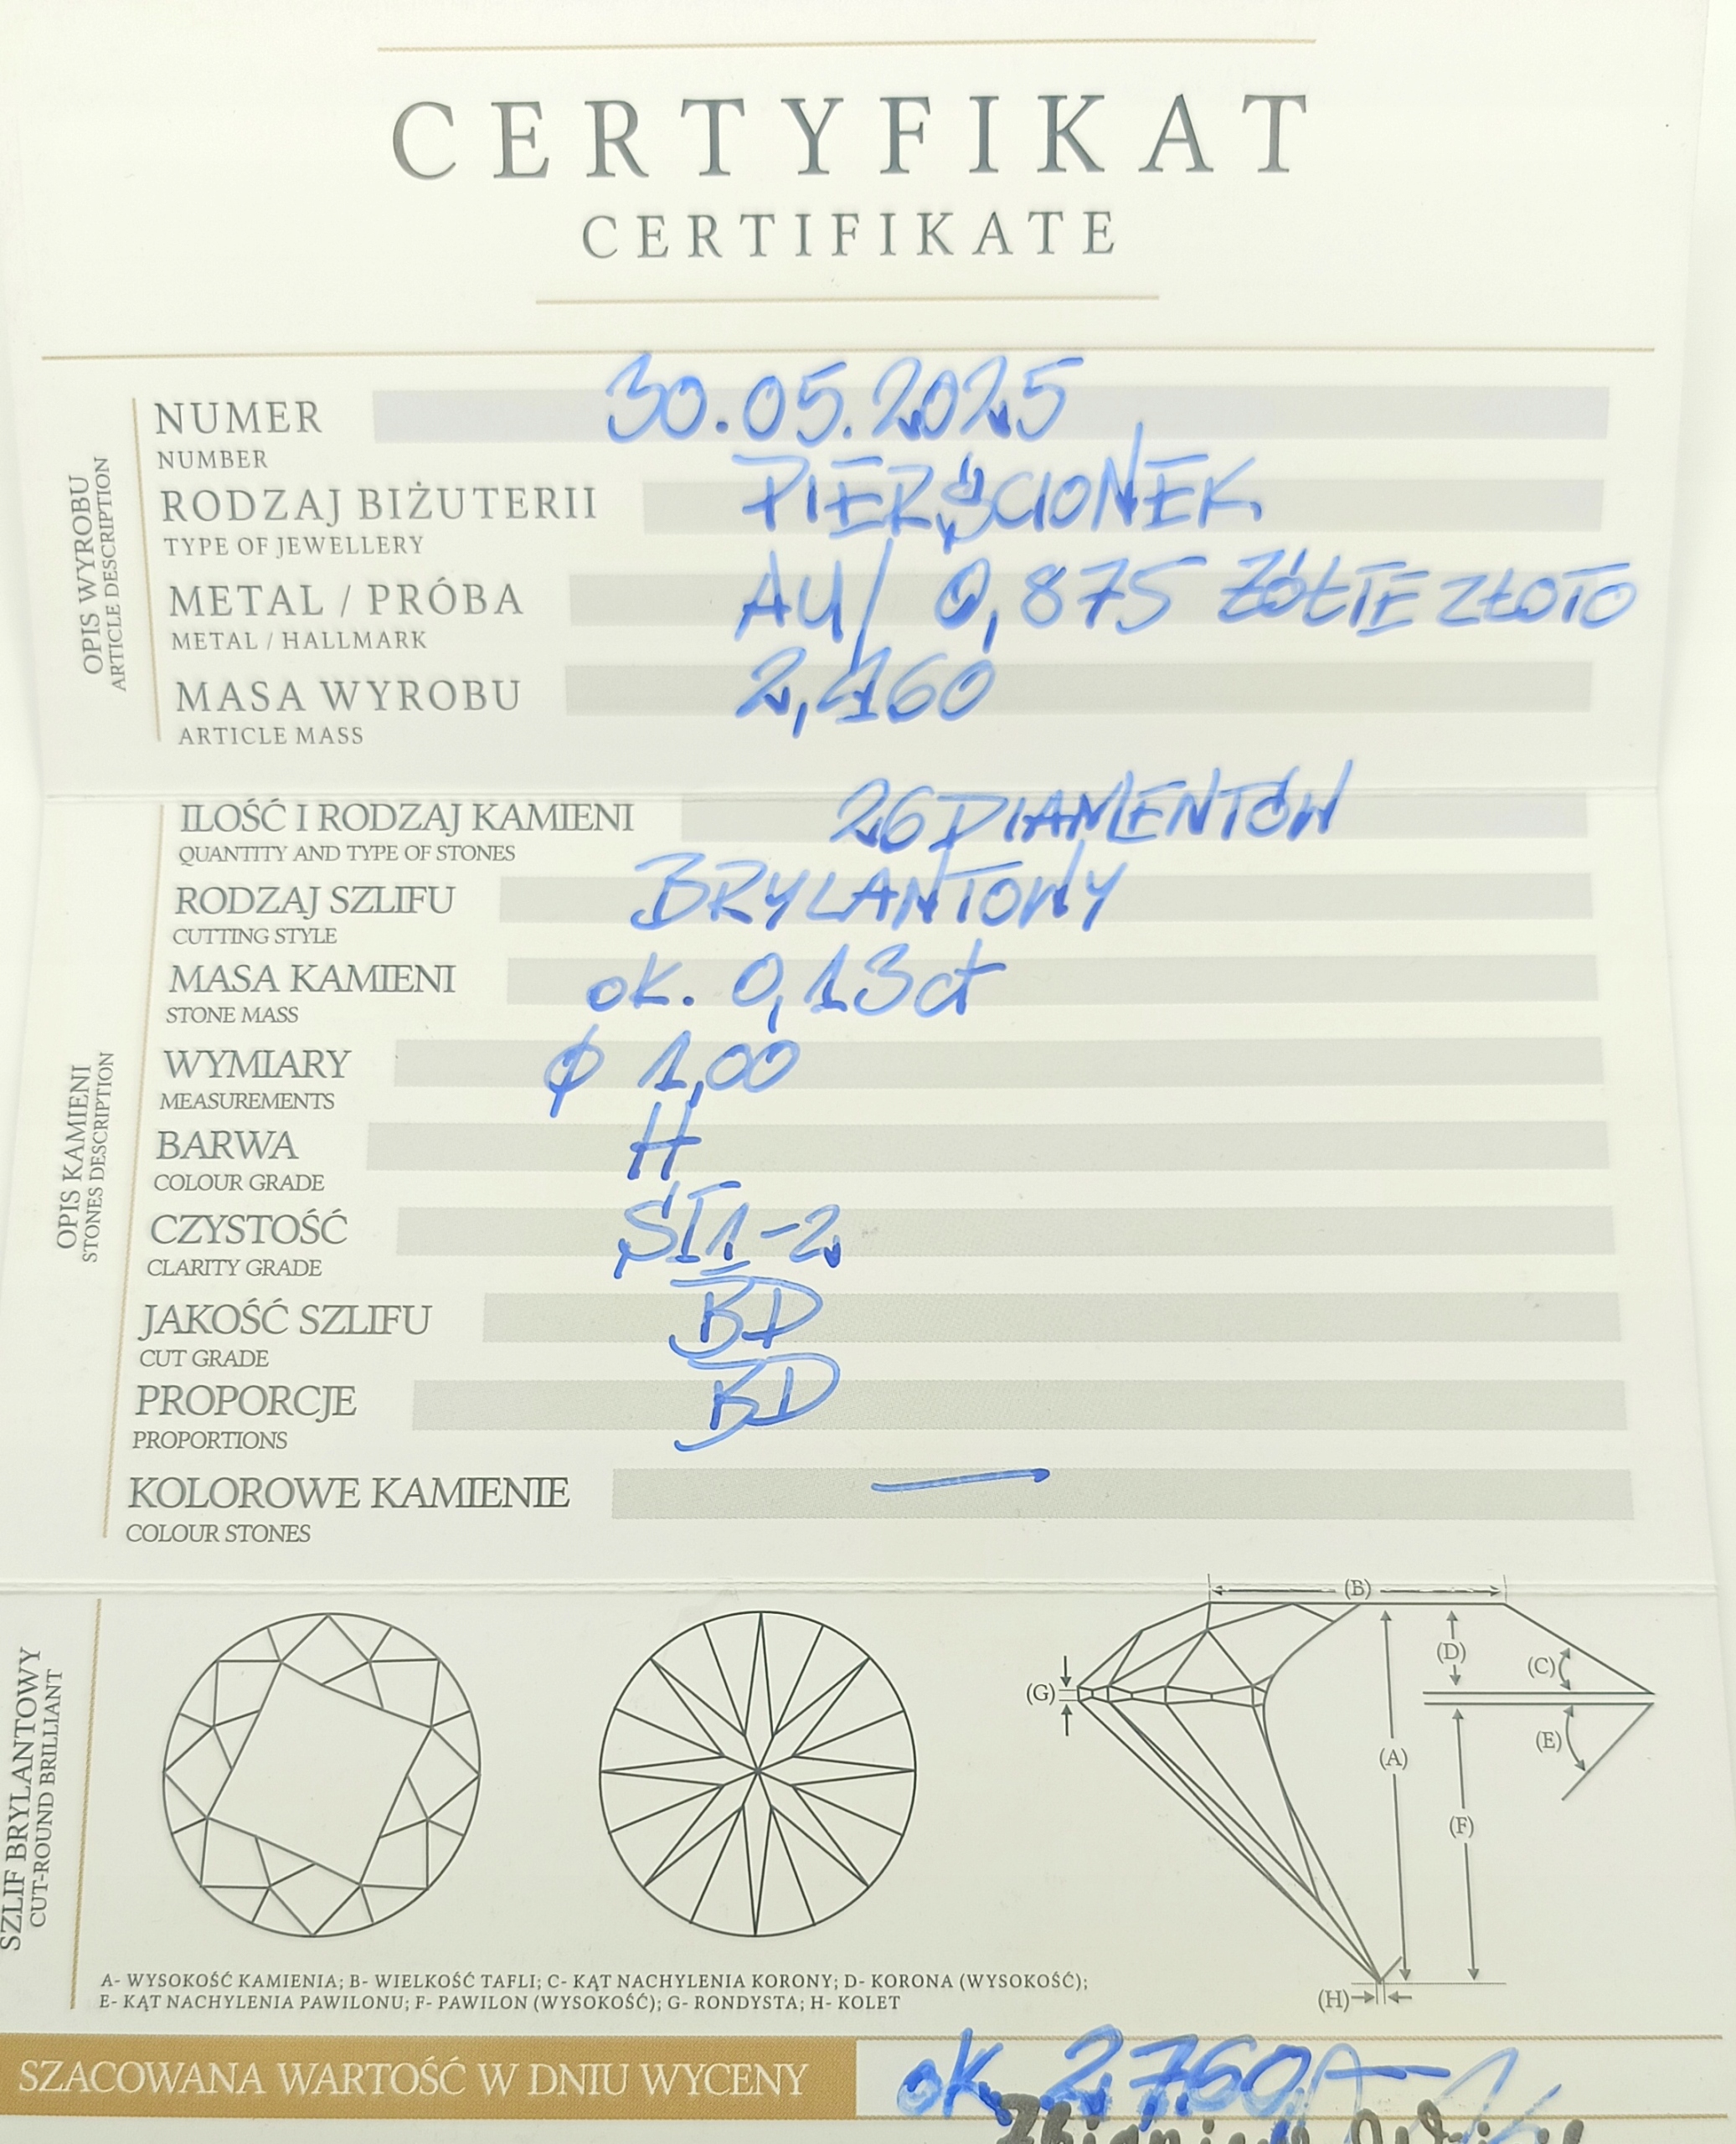 CERTYFIKAT
CERTIFIKATE
OPIS WYROBU
ARTICLE DESCRIPTION
NUMER 30.05.2025
NUMBER
RODZAJ BIŻUTERII PIERŚCIONEK
TYPE OF JEWELLERY
METAL / PRÓBA AU/ 0,875 ŻÓŁTE ZŁOTO
METAL / HALLMARK
MASA WYROBU
ARTICLE MASS
OPIS KAMIENI
STONES DESCRIPTION
ILOŚĆ I RODZAJ KAMIENI 26 DIAMENTÓW
QUANTITY AND TYPE OF STONES
RODZAJ SZLIFU BRYLANTOWY
CUTTING STYLE
MASA KAMIENI ok. 0,13ct
STONE MASS
WYMIARY φ 1,00
MEASUREMENTS
BARWA H
COLOUR GRADE
CZYSTOŚĆ SI1-2
CLARITY GRADE
JAKOŚĆ SZLIFU BD
CUT GRADE
PROPORCJE BD
PROPORTIONS
KOLOROWE KAMIENIE —
COLOUR STONES
SZLIF BRYLANTOWY
CUT-ROUND BRILLIANT
(B)
(D)
(C)
(G)
(E)
(A)
(F)
(H)
A- WYSOKOŚĆ KAMIENIA; B- WIELKOŚĆ TAFLI; C- KĄT NACHYLENIA KORONY; D- KORONA (WYSOKOŚĆ);
E- KĄT NACHYLENIA PAWILONU; F- PAWILON (WYSOKOŚĆ); G- RONDYSTA; H- KOLET
SZACOWANA WARTOŚĆ W DNIU WYCENY ok. 2760,—
Zbigniew